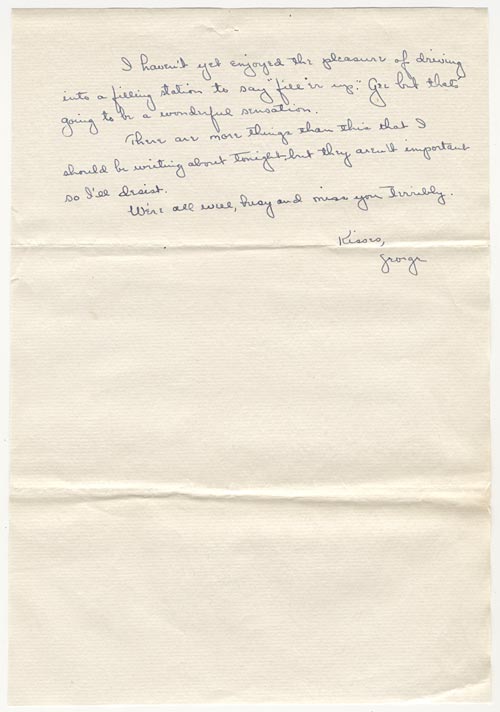 I haven't yet enjoyed the pleasure of driving
into a filling station to say "fill'er up." Gee but thats
going to be a wonderful sensation.
There are more things than this that I
should be writing about tonight, but they aren't important
so I'll desist.
We're all well, busy and miss you terribly.
Kisses,
George